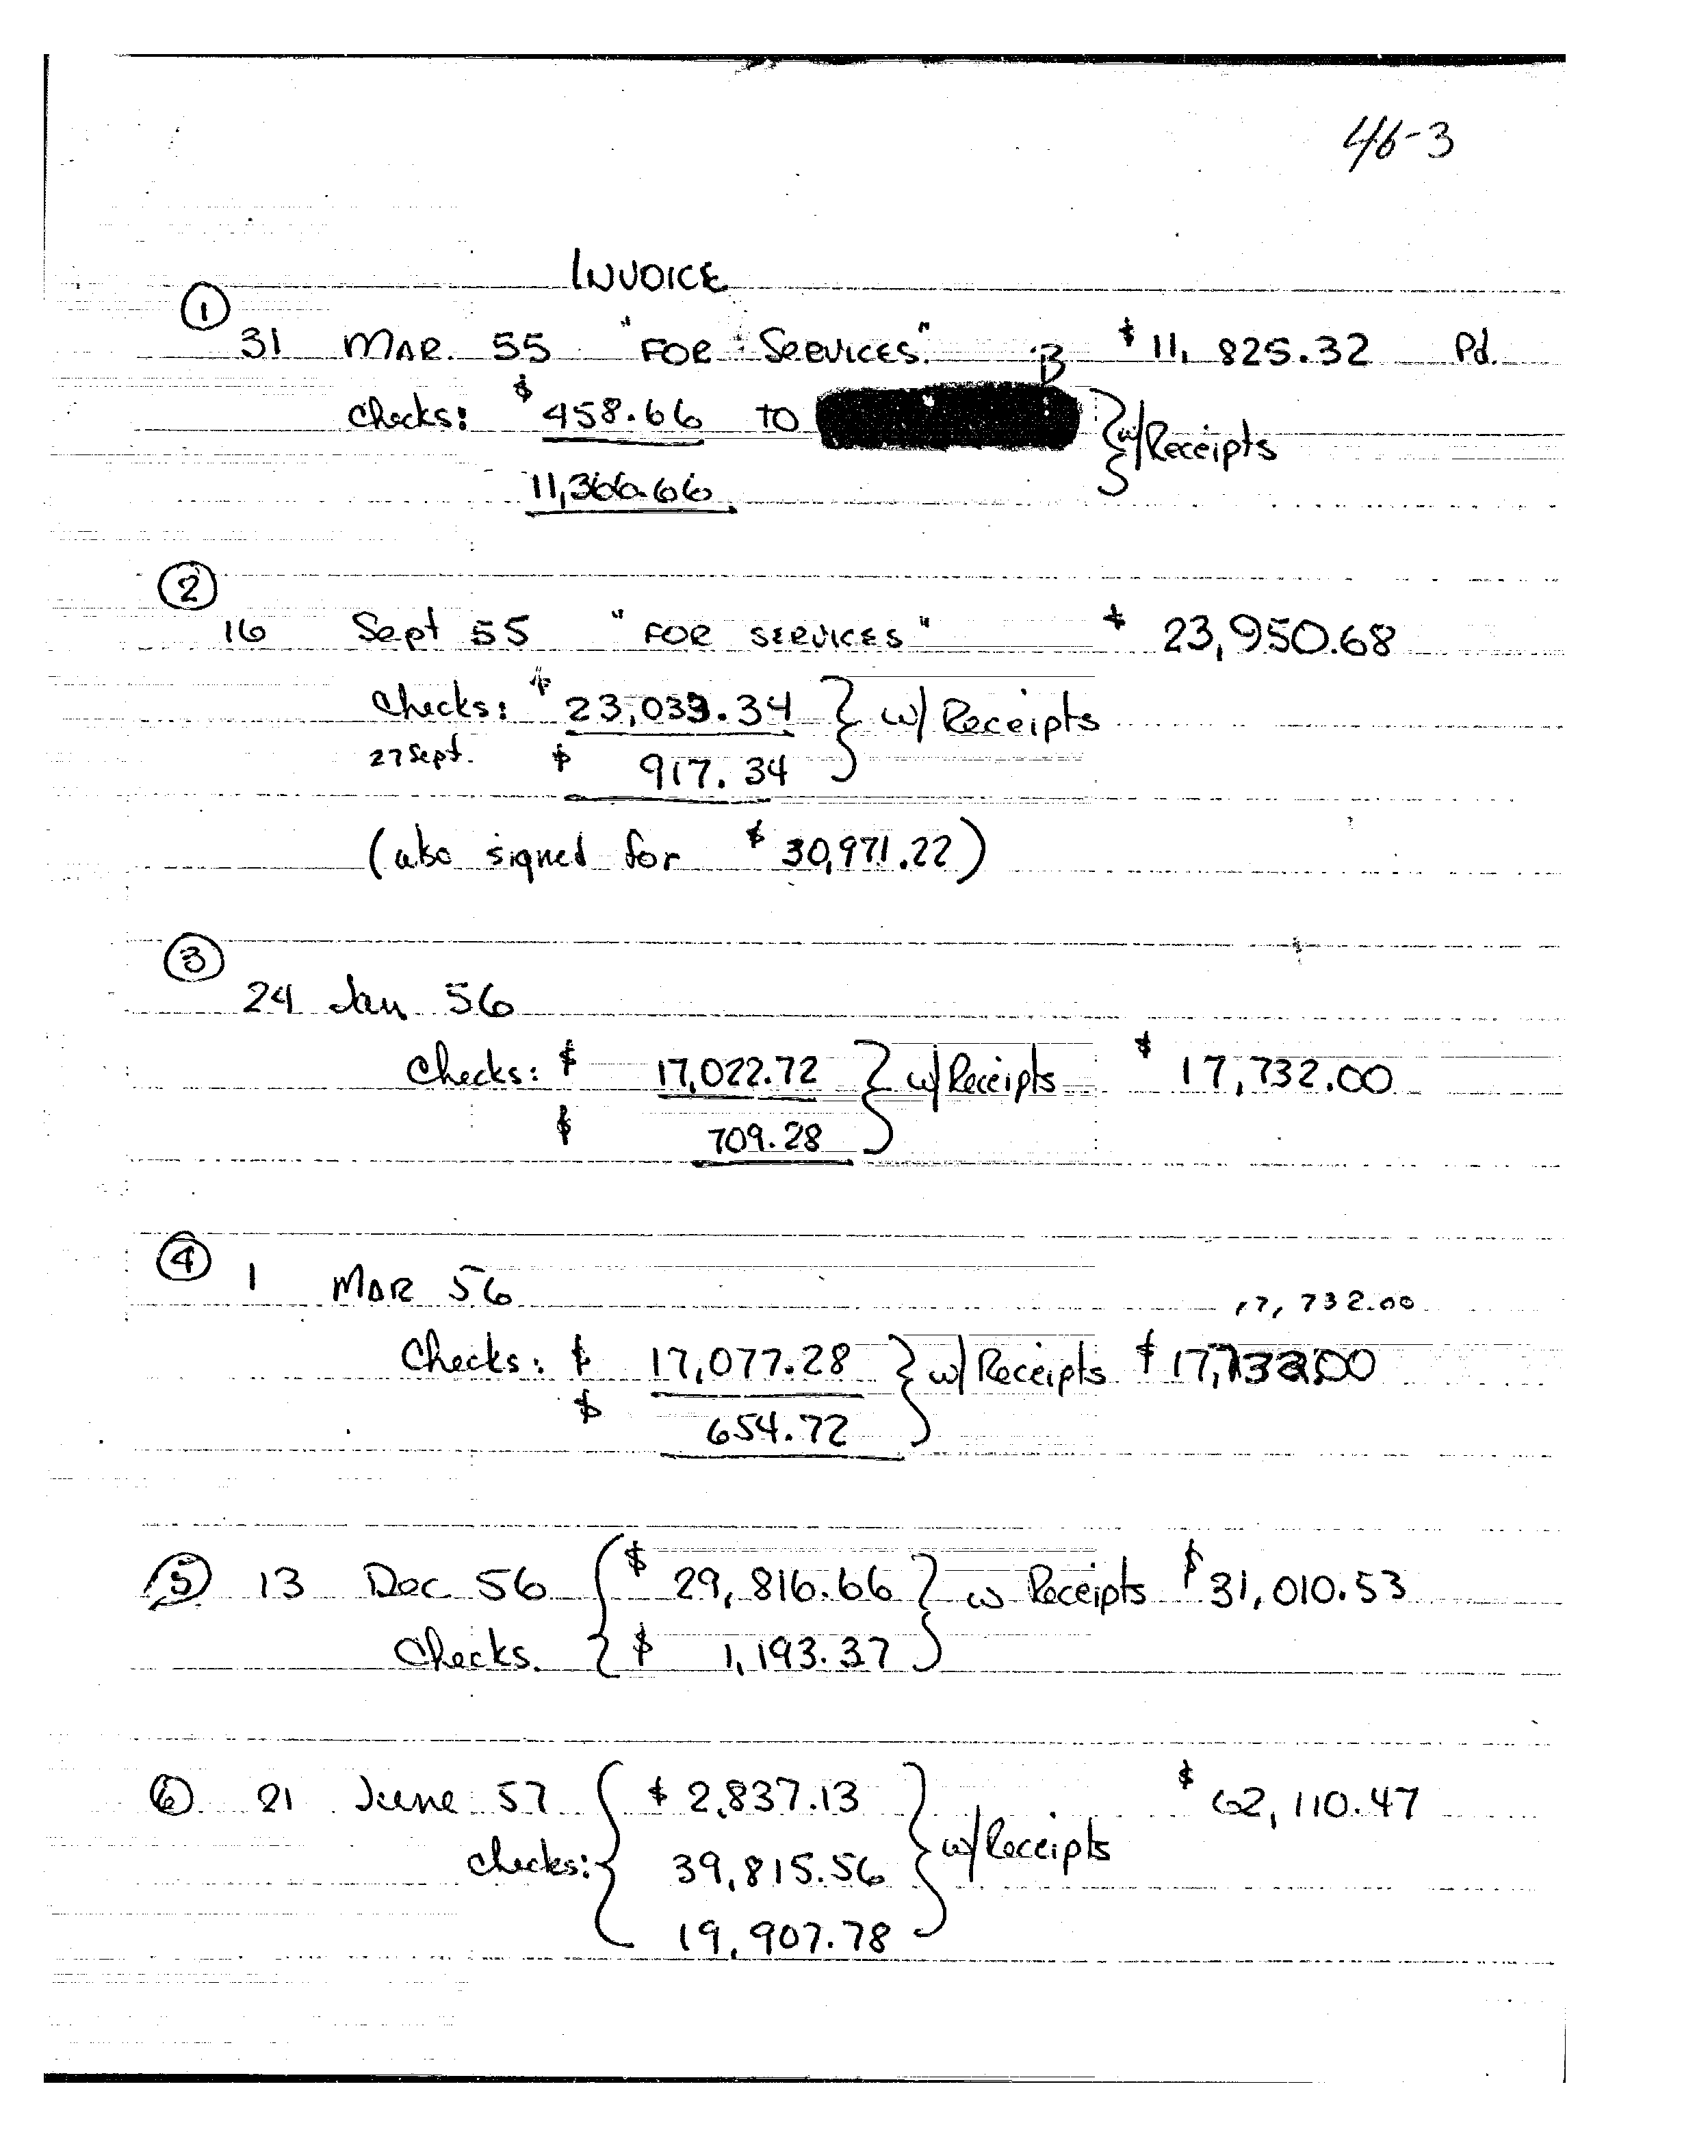 46-3
INVOICE
① 31 MAR. 55 "FOR SERVICES." $11,825.32 Pd.
B
Checks: $458.66 TO } w/Receipts
11,366.66
②
16 Sept 55 "FOR SERVICES" $23,950.68
Checks: $23,033.34 } w/ Receipts
27 Sept. $917.34
(also signed for $30,971.22)
③
24 Jan 56
Checks: $17,022.72 } w/Receipts $17,732.00
$709.28
④ 1 MAR 56
17,732.00
Checks: $17,077.28 } w/ Receipts $17,732.00
$654.72
⑤ 13 Dec 56 { $29,816.66 } w Receipts $31,010.53
Checks. $1,193.37
⑥ 21 June 57 { $2,837.13 $62,110.47
checks: 39,815.56 } w/Receipts
19,907.78